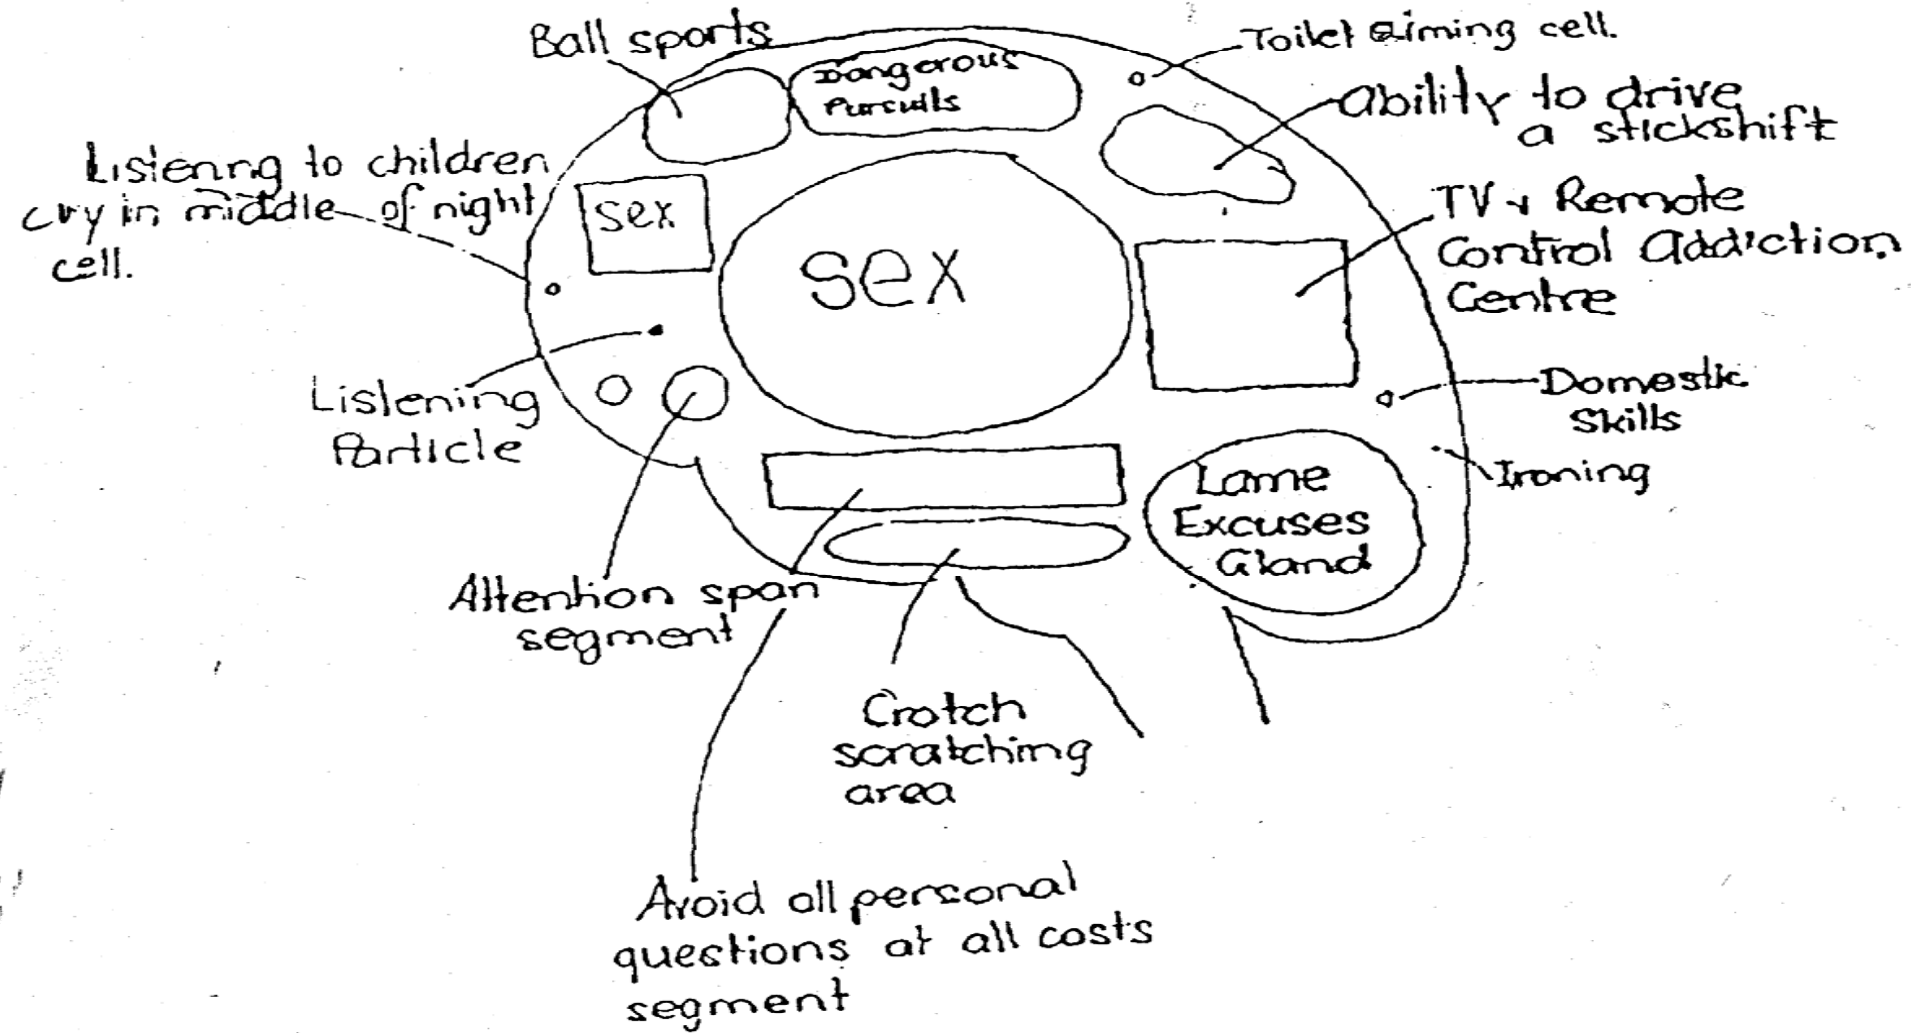 Ball sports
Dangerous
Pursuits
Toilet aiming cell.
Ability to drive
a stickshift
Listening to children
cry in middle of night
cell.
sex
sex
TV + Remote
Control Addiction
Centre
Listening
Particle
Domestic
Skills
Ironing
Lame
Excuses
Gland
Attention span
segment
Crotch
scratching
area
Avoid all personal
questions at all costs
segment